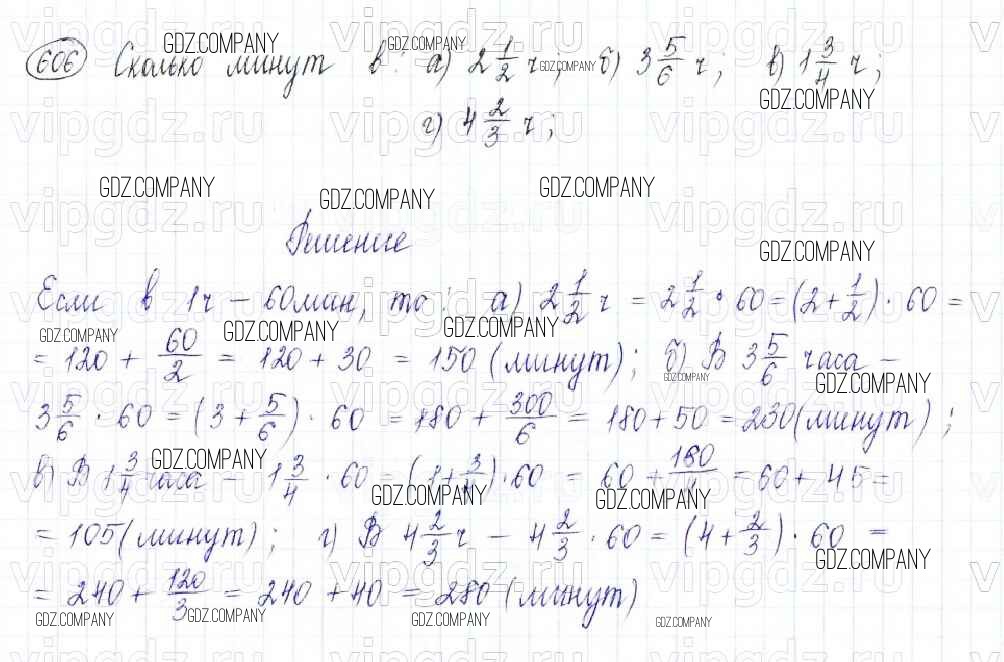 606 Сколько минут в: а) 2 1/2 ч; б) 3 5/6 ч; в) 1 3/4 ч;
г) 4 2/3 ч;
Решение
Если в 1ч – 60мин, то: а) 2 1/2 ч = 2 1/2 · 60 = (2 + 1/2) · 60 =
= 120 + 60/2 = 120 + 30 = 150 (минут); б) В 3 5/6 часа –
3 5/6 · 60 = (3 + 5/6) · 60 = 180 + 300/6 = 180 + 50 = 230 (минут);
в) В 1 3/4 часа – 1 3/4 · 60 = (1 + 3/4) · 60 = 60 + 180/4 = 60 + 45 =
= 105 (минут); г) В 4 2/3 ч – 4 2/3 · 60 = (4 + 2/3) · 60 =
= 240 + 120/3 = 240 + 40 = 280 (минут)
GDZ.COMPANY
vipgdz.ru